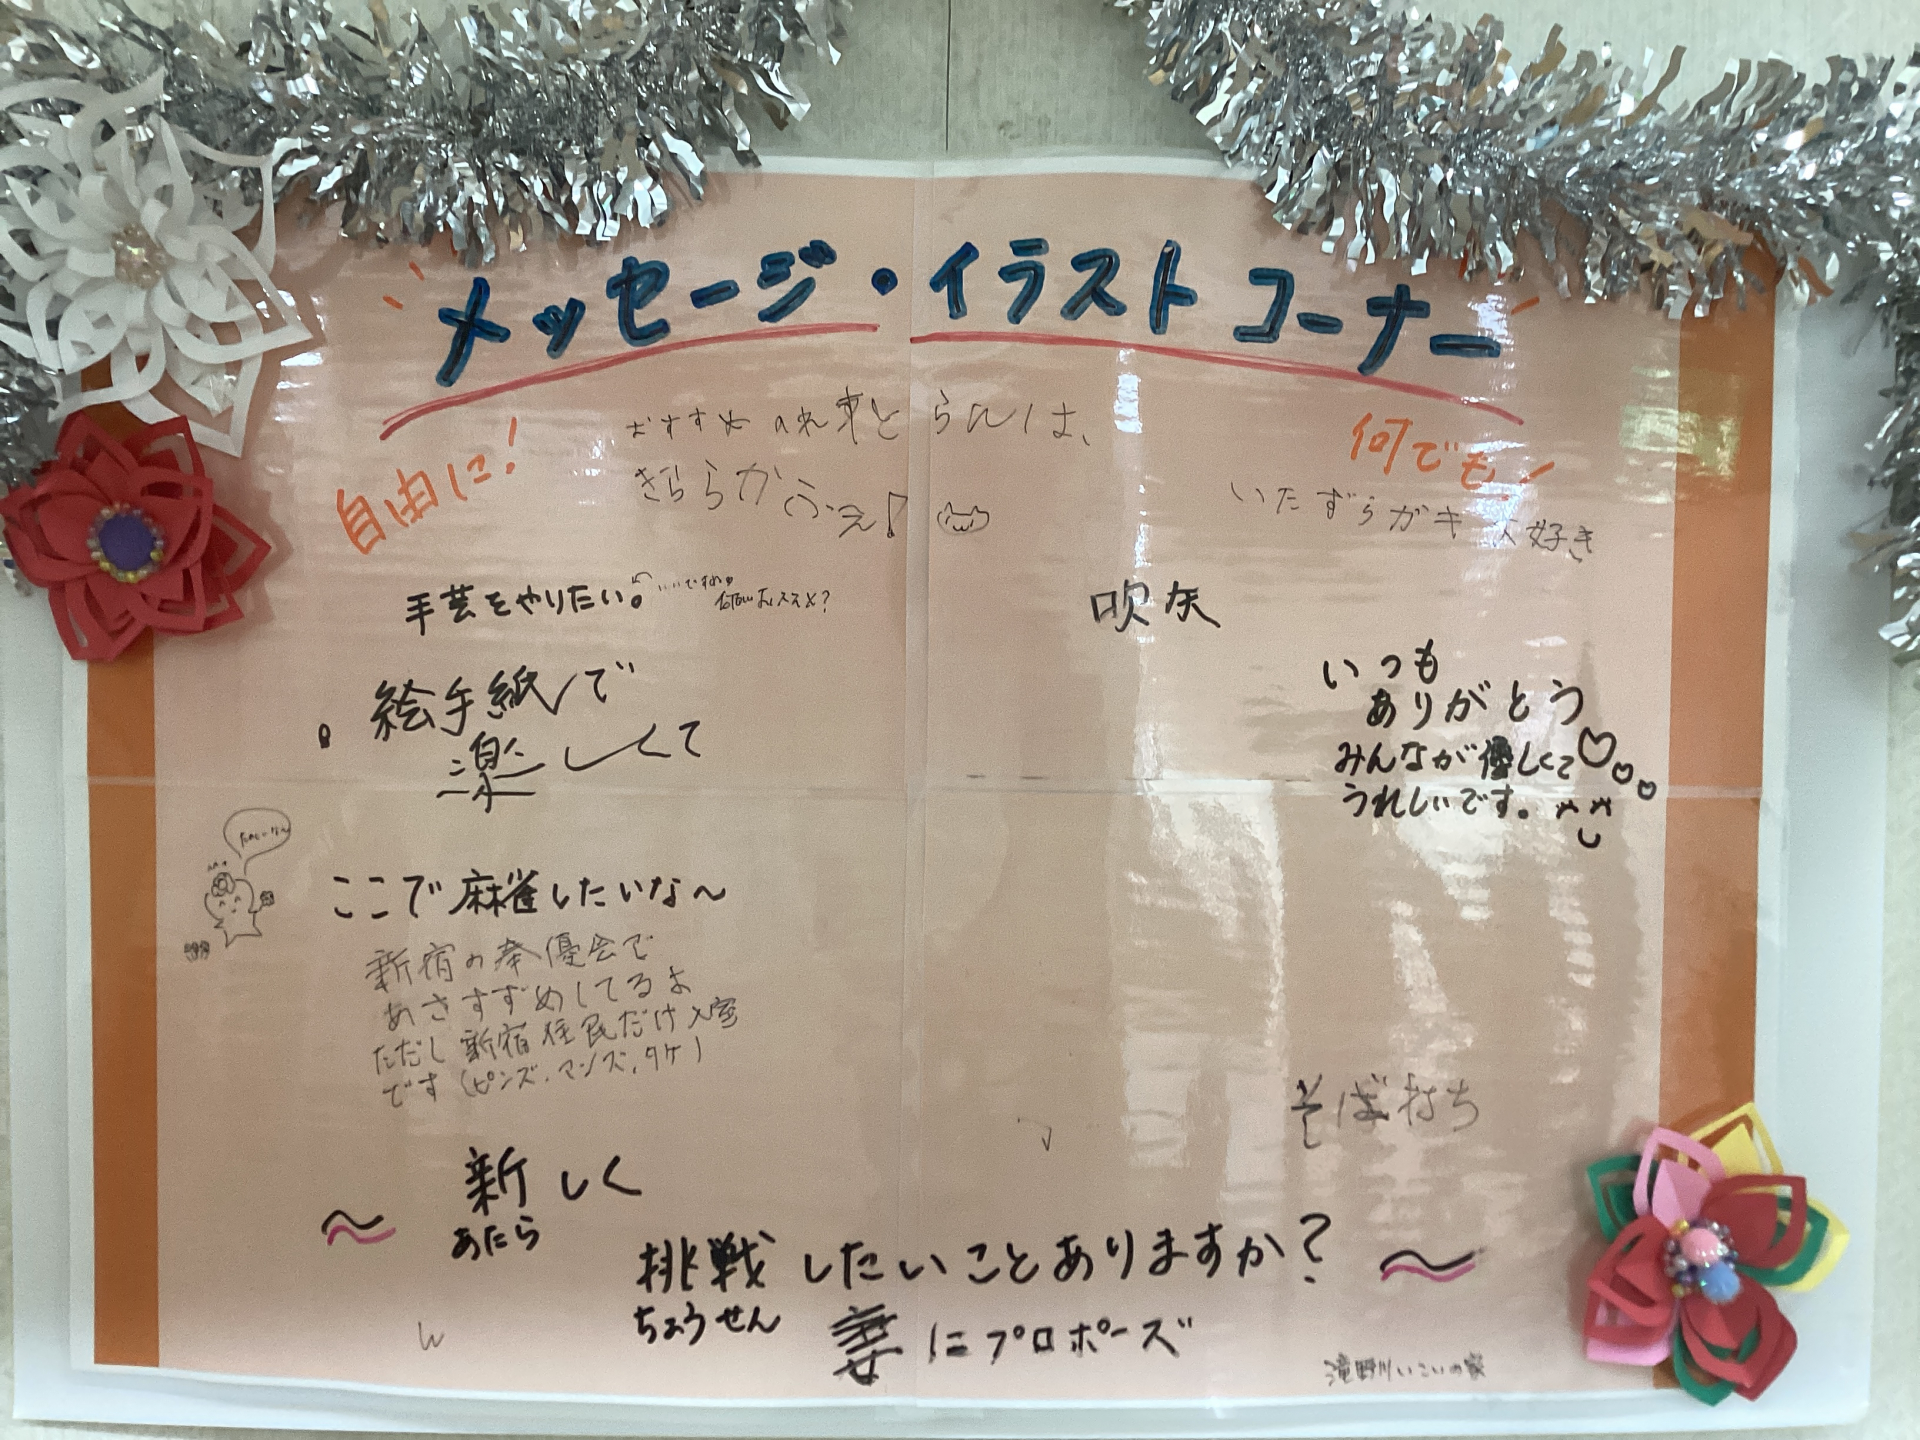 メッセージ・イラストコーナー
自由に!
何でも!
おすすめのれすとらんは、
きららかふぇ♪
いたずらガキ大好き
手芸をやりたい。
いいですね。
何がオススメ?
吹矢
絵手紙で
楽しくて
いつも
ありがとう
みんなが優しくて
うれしいです。
ここで麻雀したいな〜
新宿の奉優会で
あさすずめしてるよ
ただし新宿住民だけ入室
です(ピンズ、マンズ、タケ)
そば打ち
〜 新しく
あたら
挑戦したいことありますか? 〜
ちょうせん
妻にプロポーズ
滝野川いこいの家